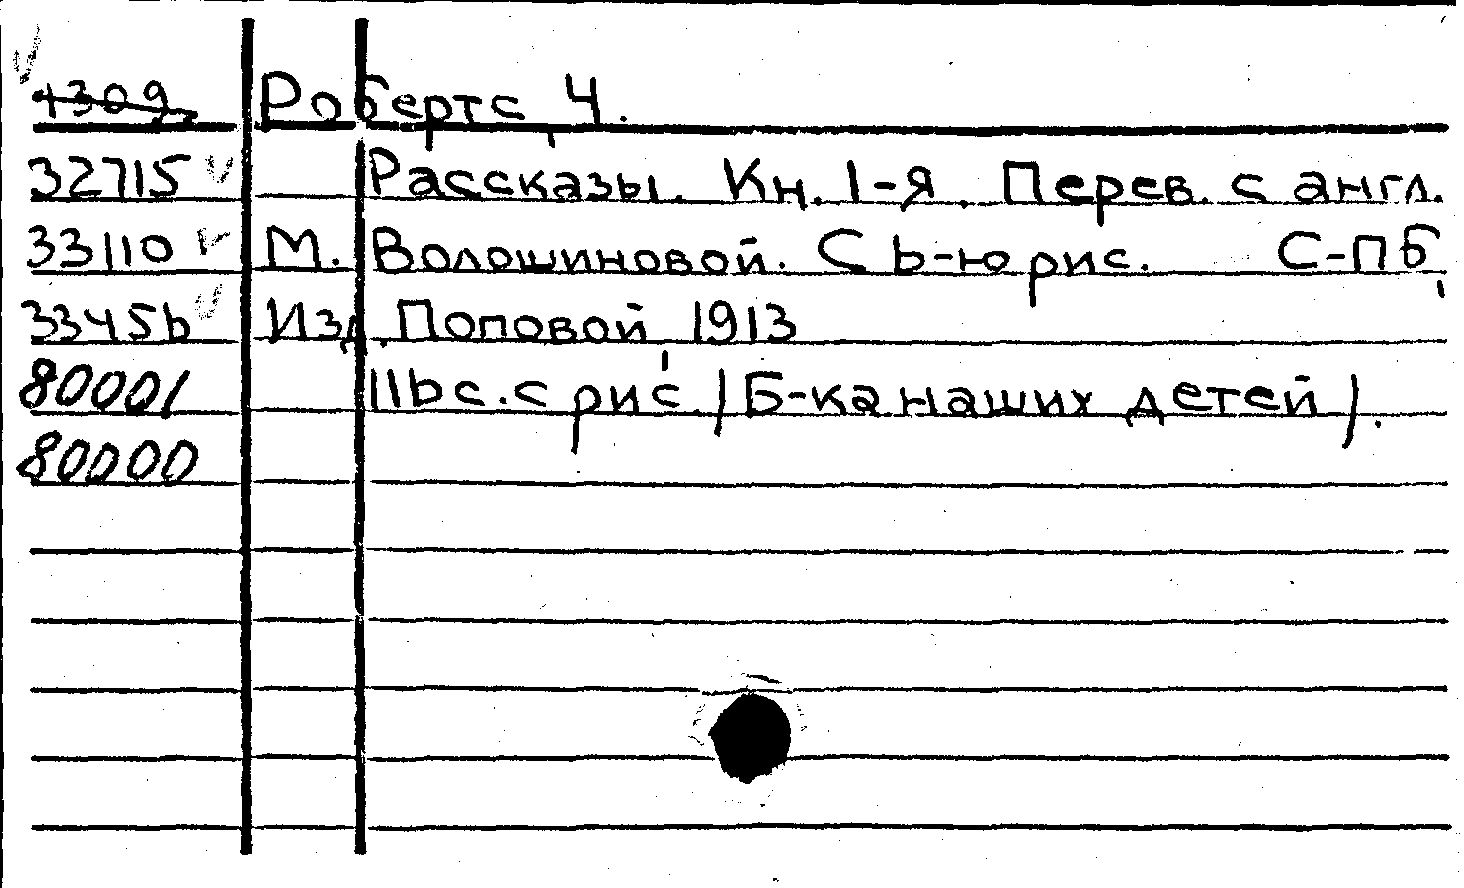 1309 Робертс Ч.
32715 Рассказы. Кн. 1-я. Перев. с англ.
33110 М. Волошиновой. С 6-ю рис. С-Пб,
33456 Изд. Поповой 1913
80001 116с. с рис. /Б-ка наших детей/.
80000